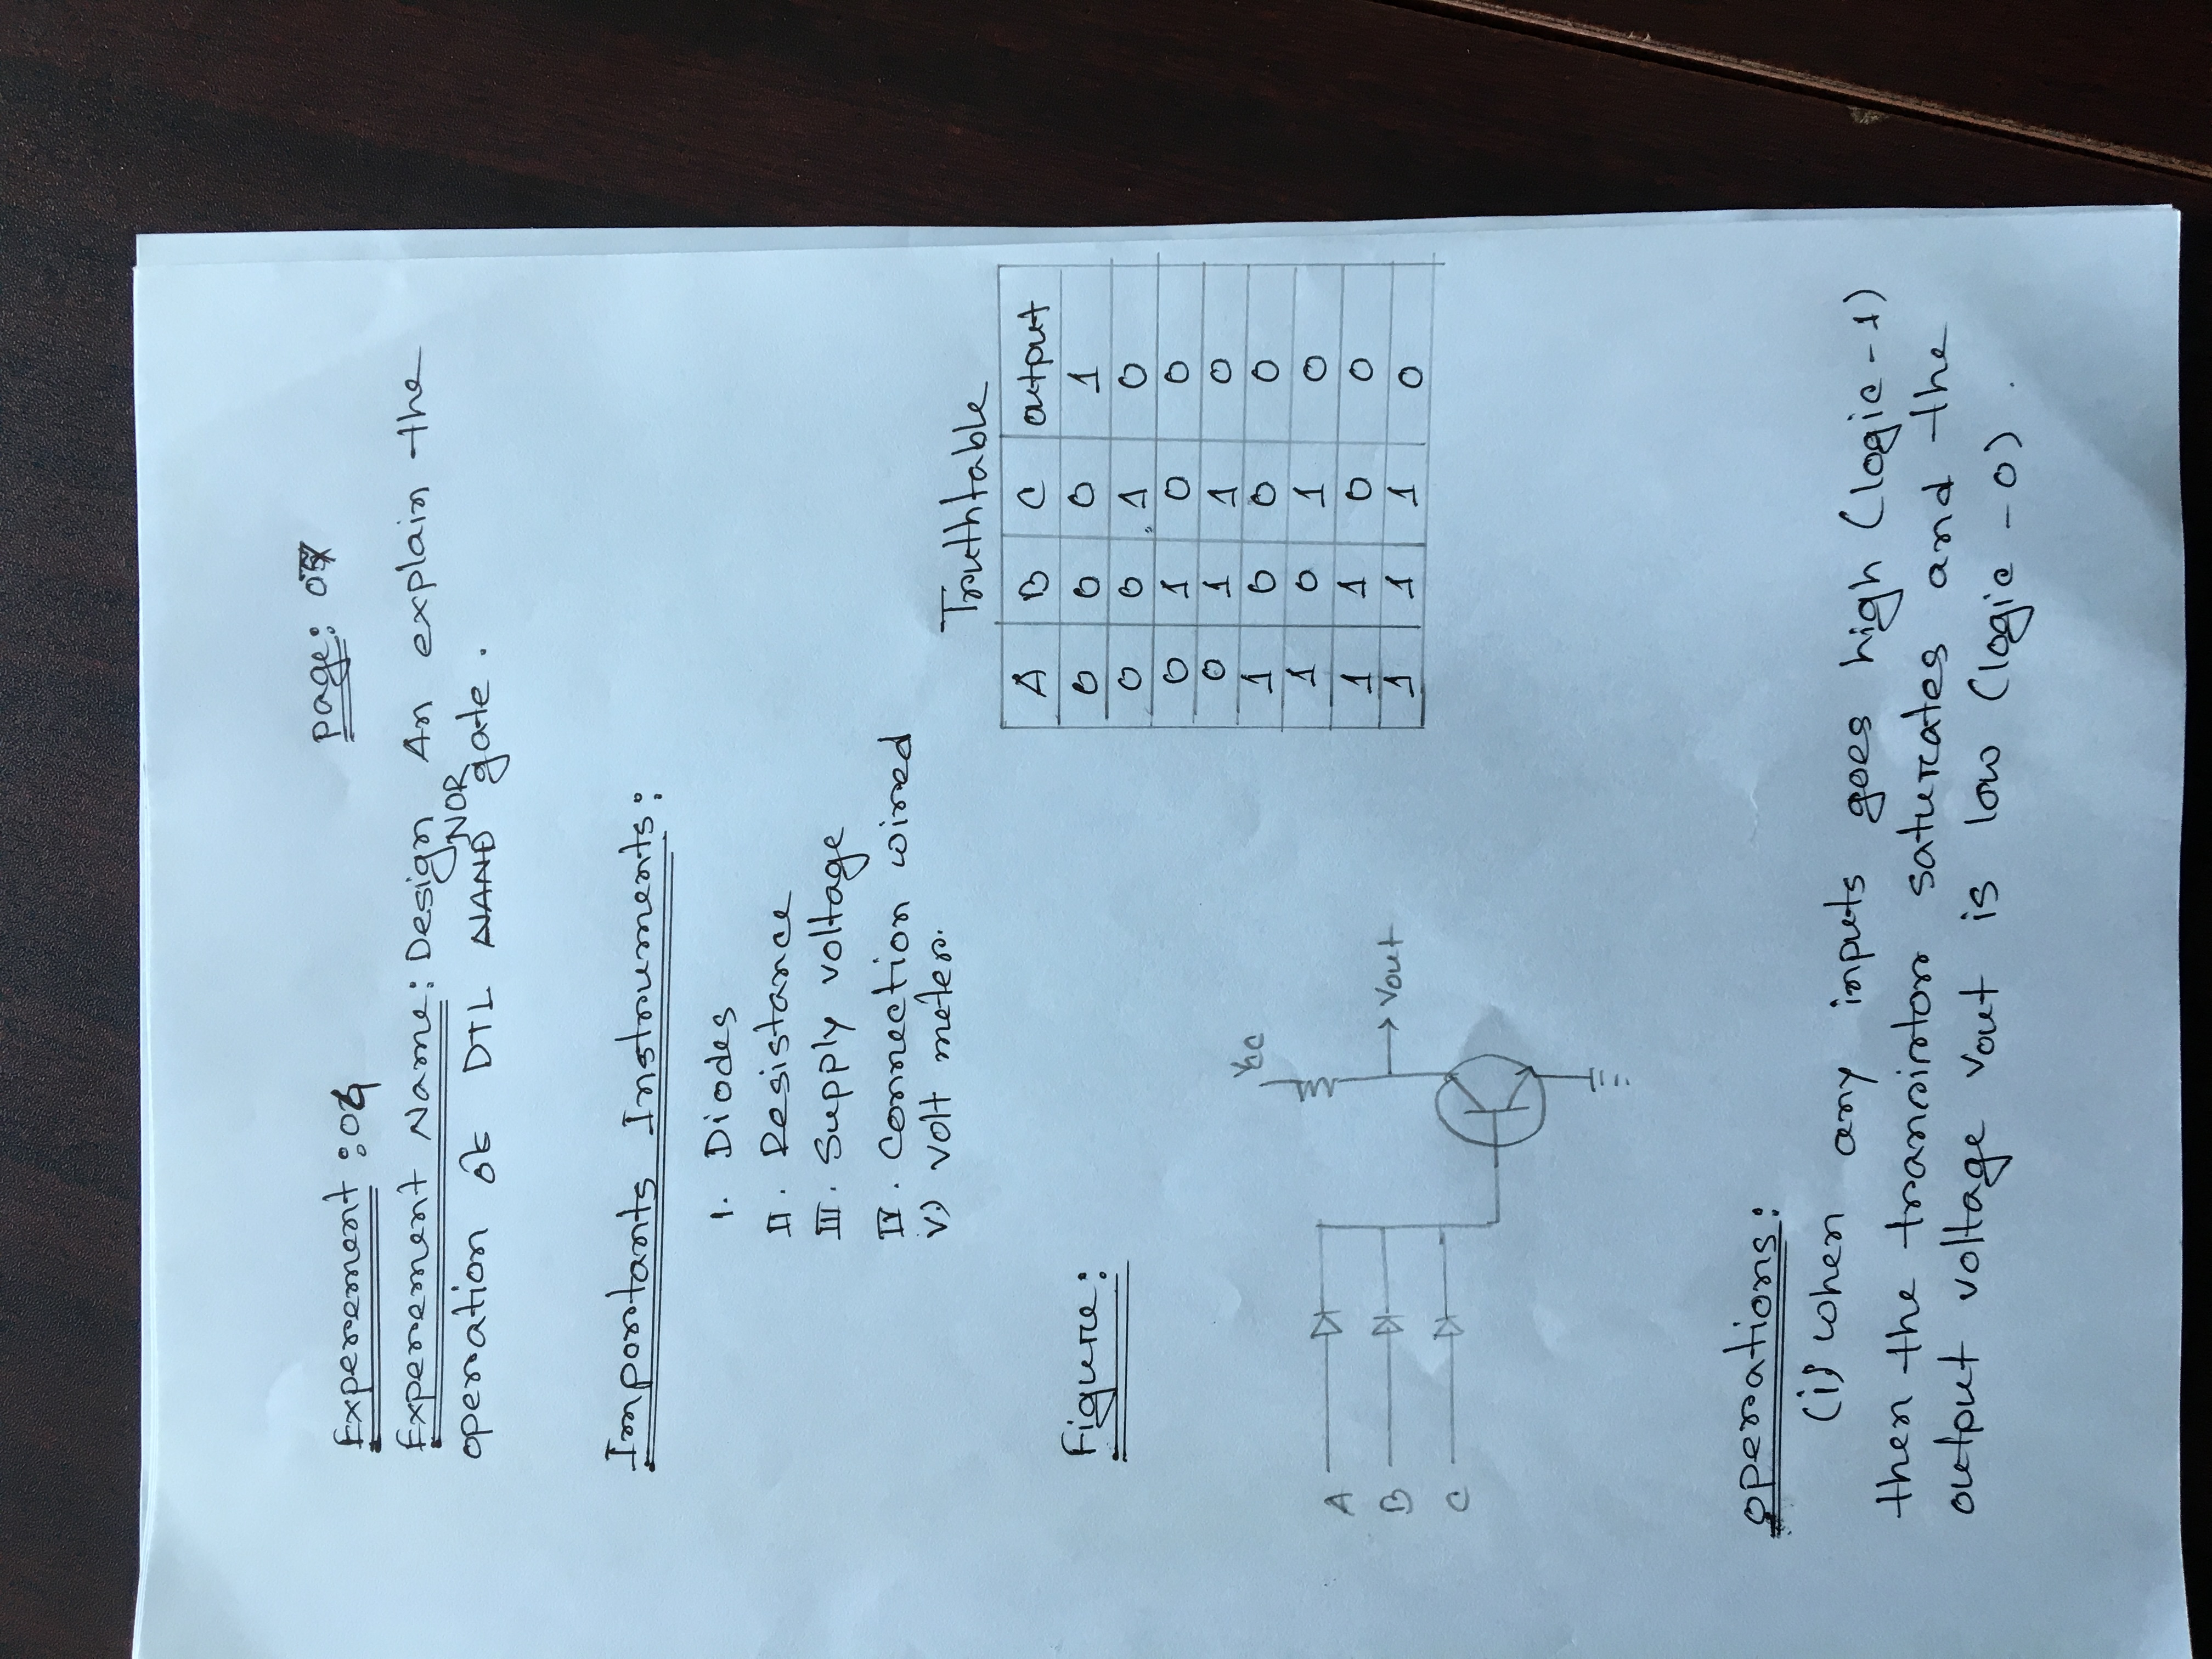 page: 07
Experement : 04
Experement Name: Design An explain the
NOR
operation of DTL NAND gate.
Importants Instruments:
I. Diodes
II. Resistance
III. Supply voltage
IV. Connection wired
V) volt meter.
Truthtable
A B C output
0 0 0 1
0 0 1 0
0 1 0 0
0 1 1 0
1 0 0 0
1 0 1 0
1 1 0 0
1 1 1 0
Figure:
Vcc
A
B
C
Vout
operations:
(i) when any inputs goes high (logic-1)
then the transistor saturates and the
output voltage Vout is low (logic-0).